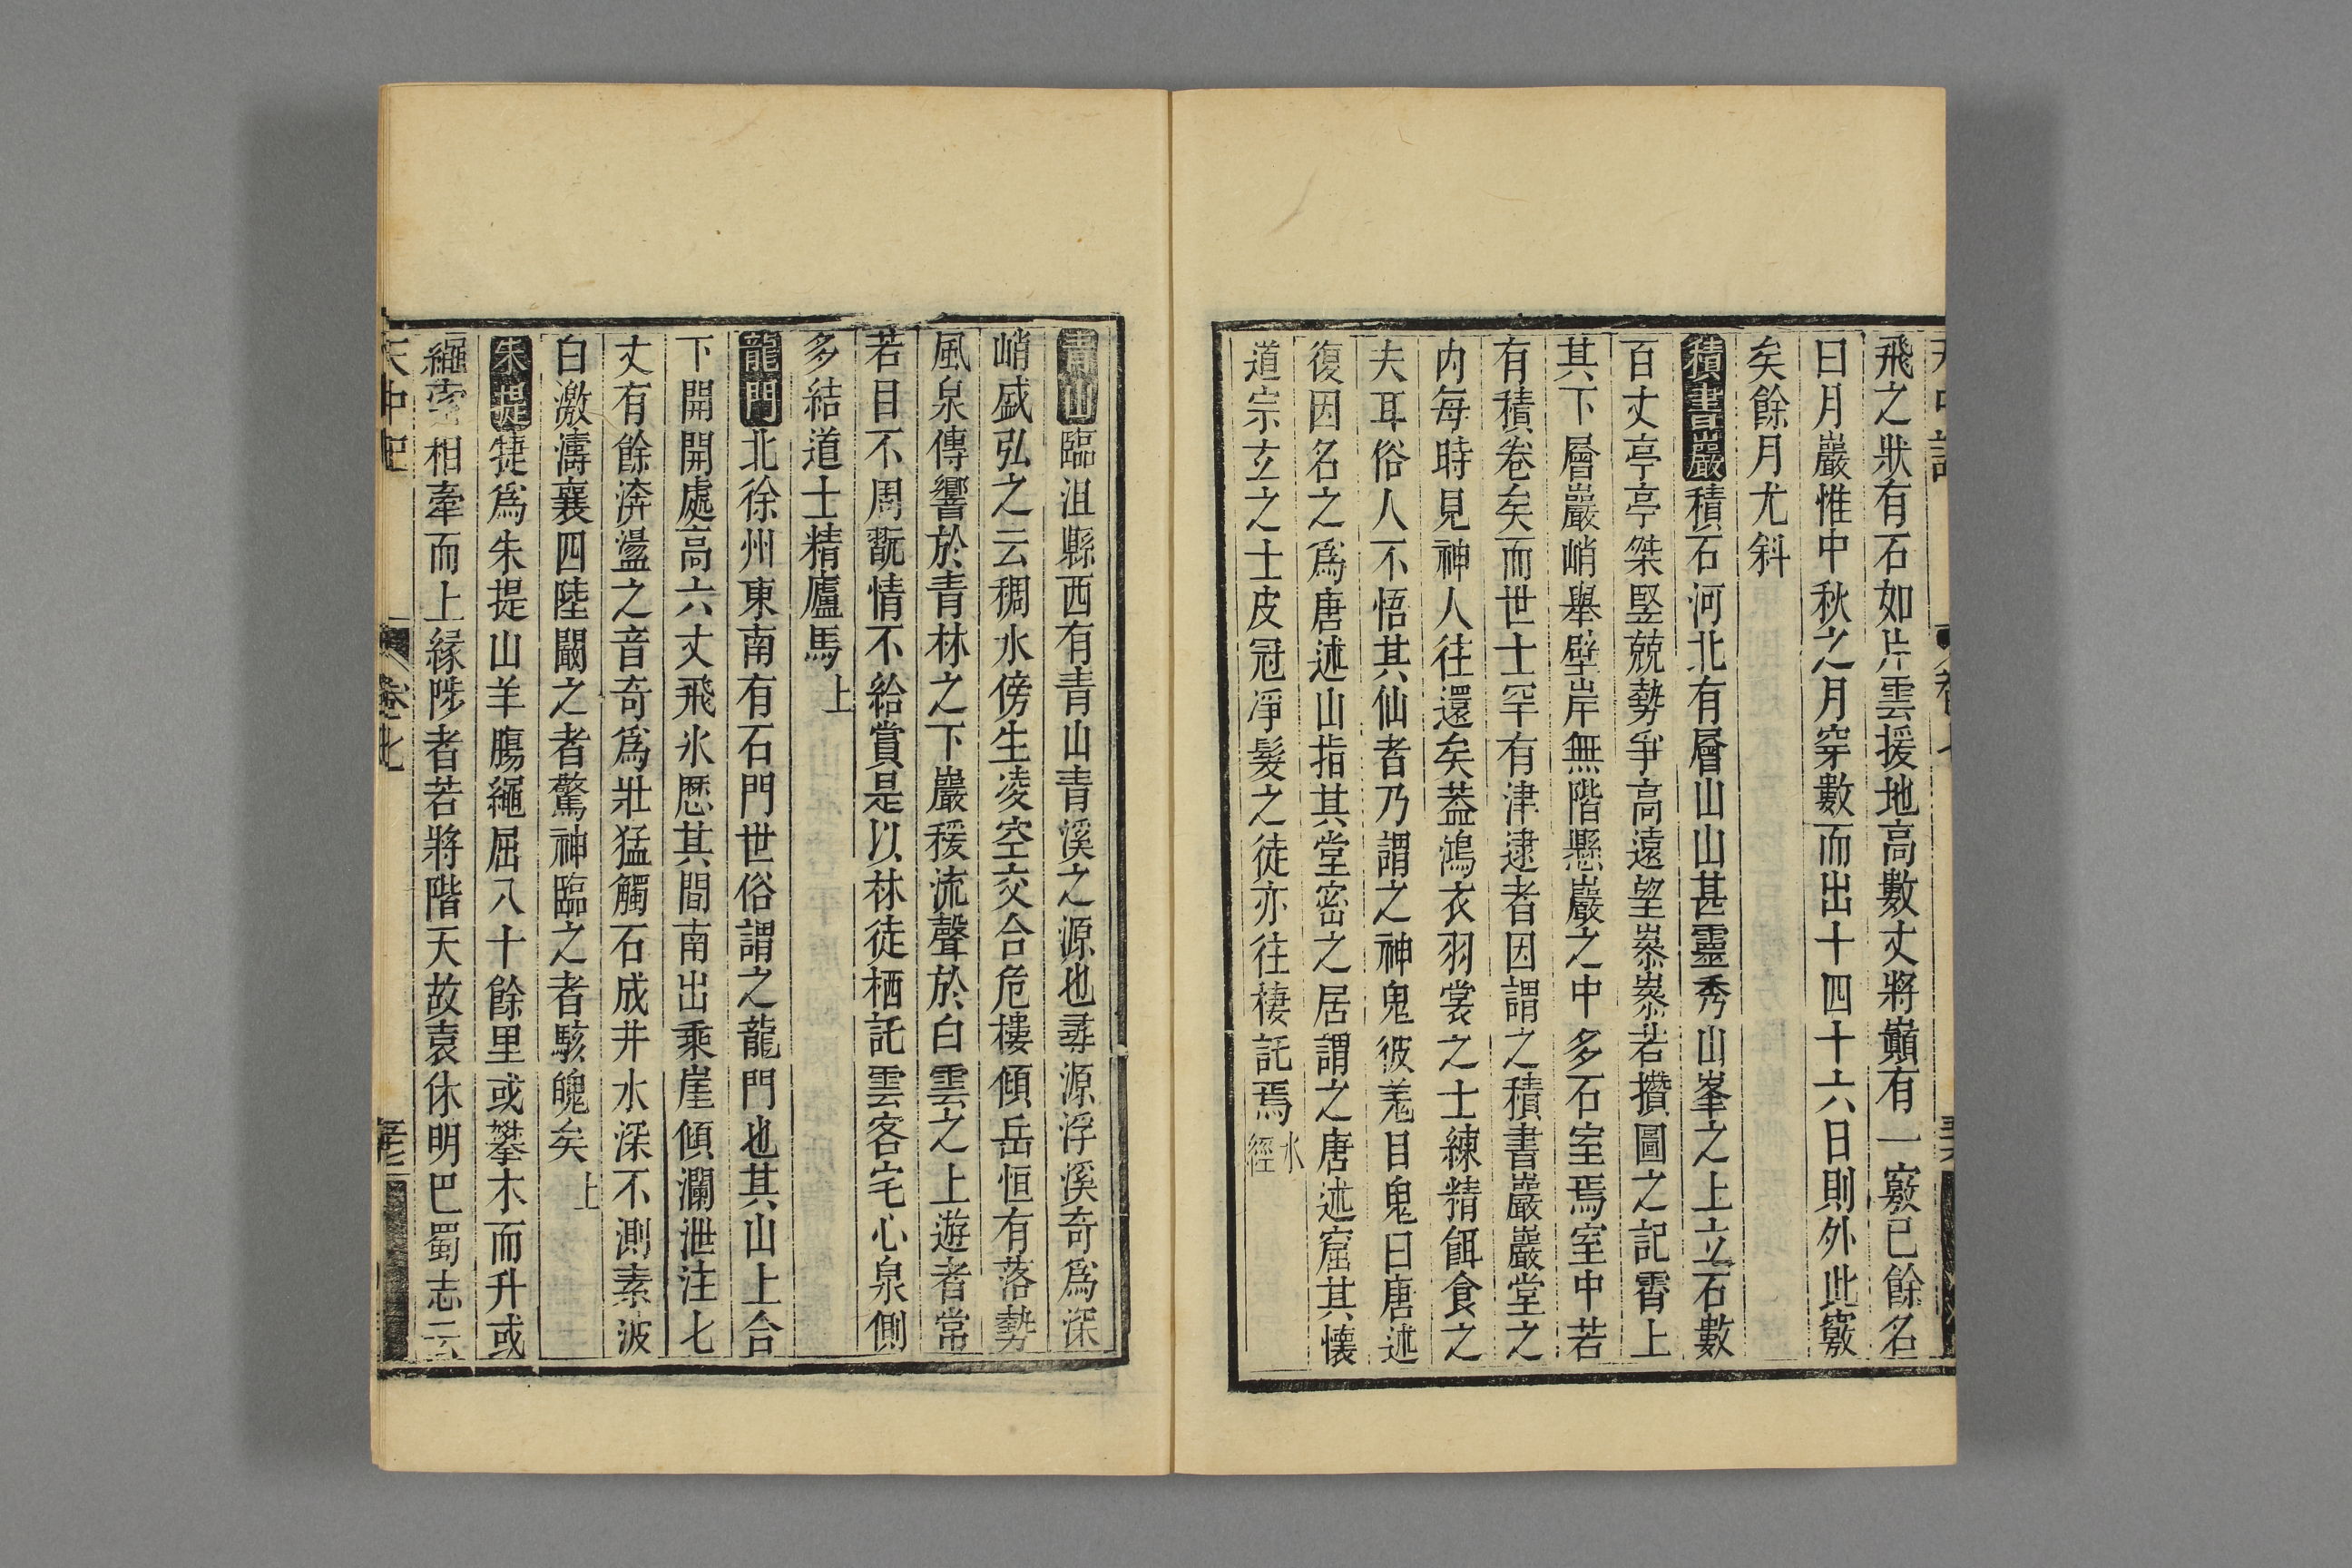 飛之狀有石如片雲援地高數丈將巔有一竅已餘名
曰月巖惟中秋之月穿數而出十四十六日則外此竅
矣餘月尤斜
積書巖積石河北有層山山甚靈秀山峯之上立石數
百丈亭亭桀竪兢勢爭高遠望嵾嵾若攢圖之記霄上
其下層巖峭舉壁岸無階懸巖之中多石室焉室中若
有積卷矣而世士罕有津逮者因謂之積書巖巖堂之
内每時見神人往還矣葢鴻衣羽裳之士練精餌食之
夫耳俗人不悟其仙者乃謂之神鬼彼羗目鬼曰唐述
復因名之爲唐述山指其堂密之居謂之唐述窟其懐
道宗玄之士皮冠凈髮之徒亦往棲託焉水經
青山臨沮縣西有青山青溪之源也尋源浮溪奇爲深
峭盛弘之云稠水傍生凌空交合危樓傾岳恒有落勢
風泉傳響於青林之下巖猨流聲於白雲之上遊者常
若目不周翫情不給賞是以林徒栖託雲客宅心泉側
多結道士精廬馬上
龍門北徐州東南有石門世俗謂之龍門也其山上合
下開開處高六丈飛氷歷其間南出乘崖傾瀾泄注七
丈有餘渀盪之音奇爲壯猛觸石成井水深不測素波
白激濤襄四陸闞之者驚神臨之者駭魄矣上
朱提㨗爲朱提山羊膓繩屈八十餘里或攀木而升或
繩索相牽而上緣陟者若將階天故袁休明巴蜀志云
天中記 卷七